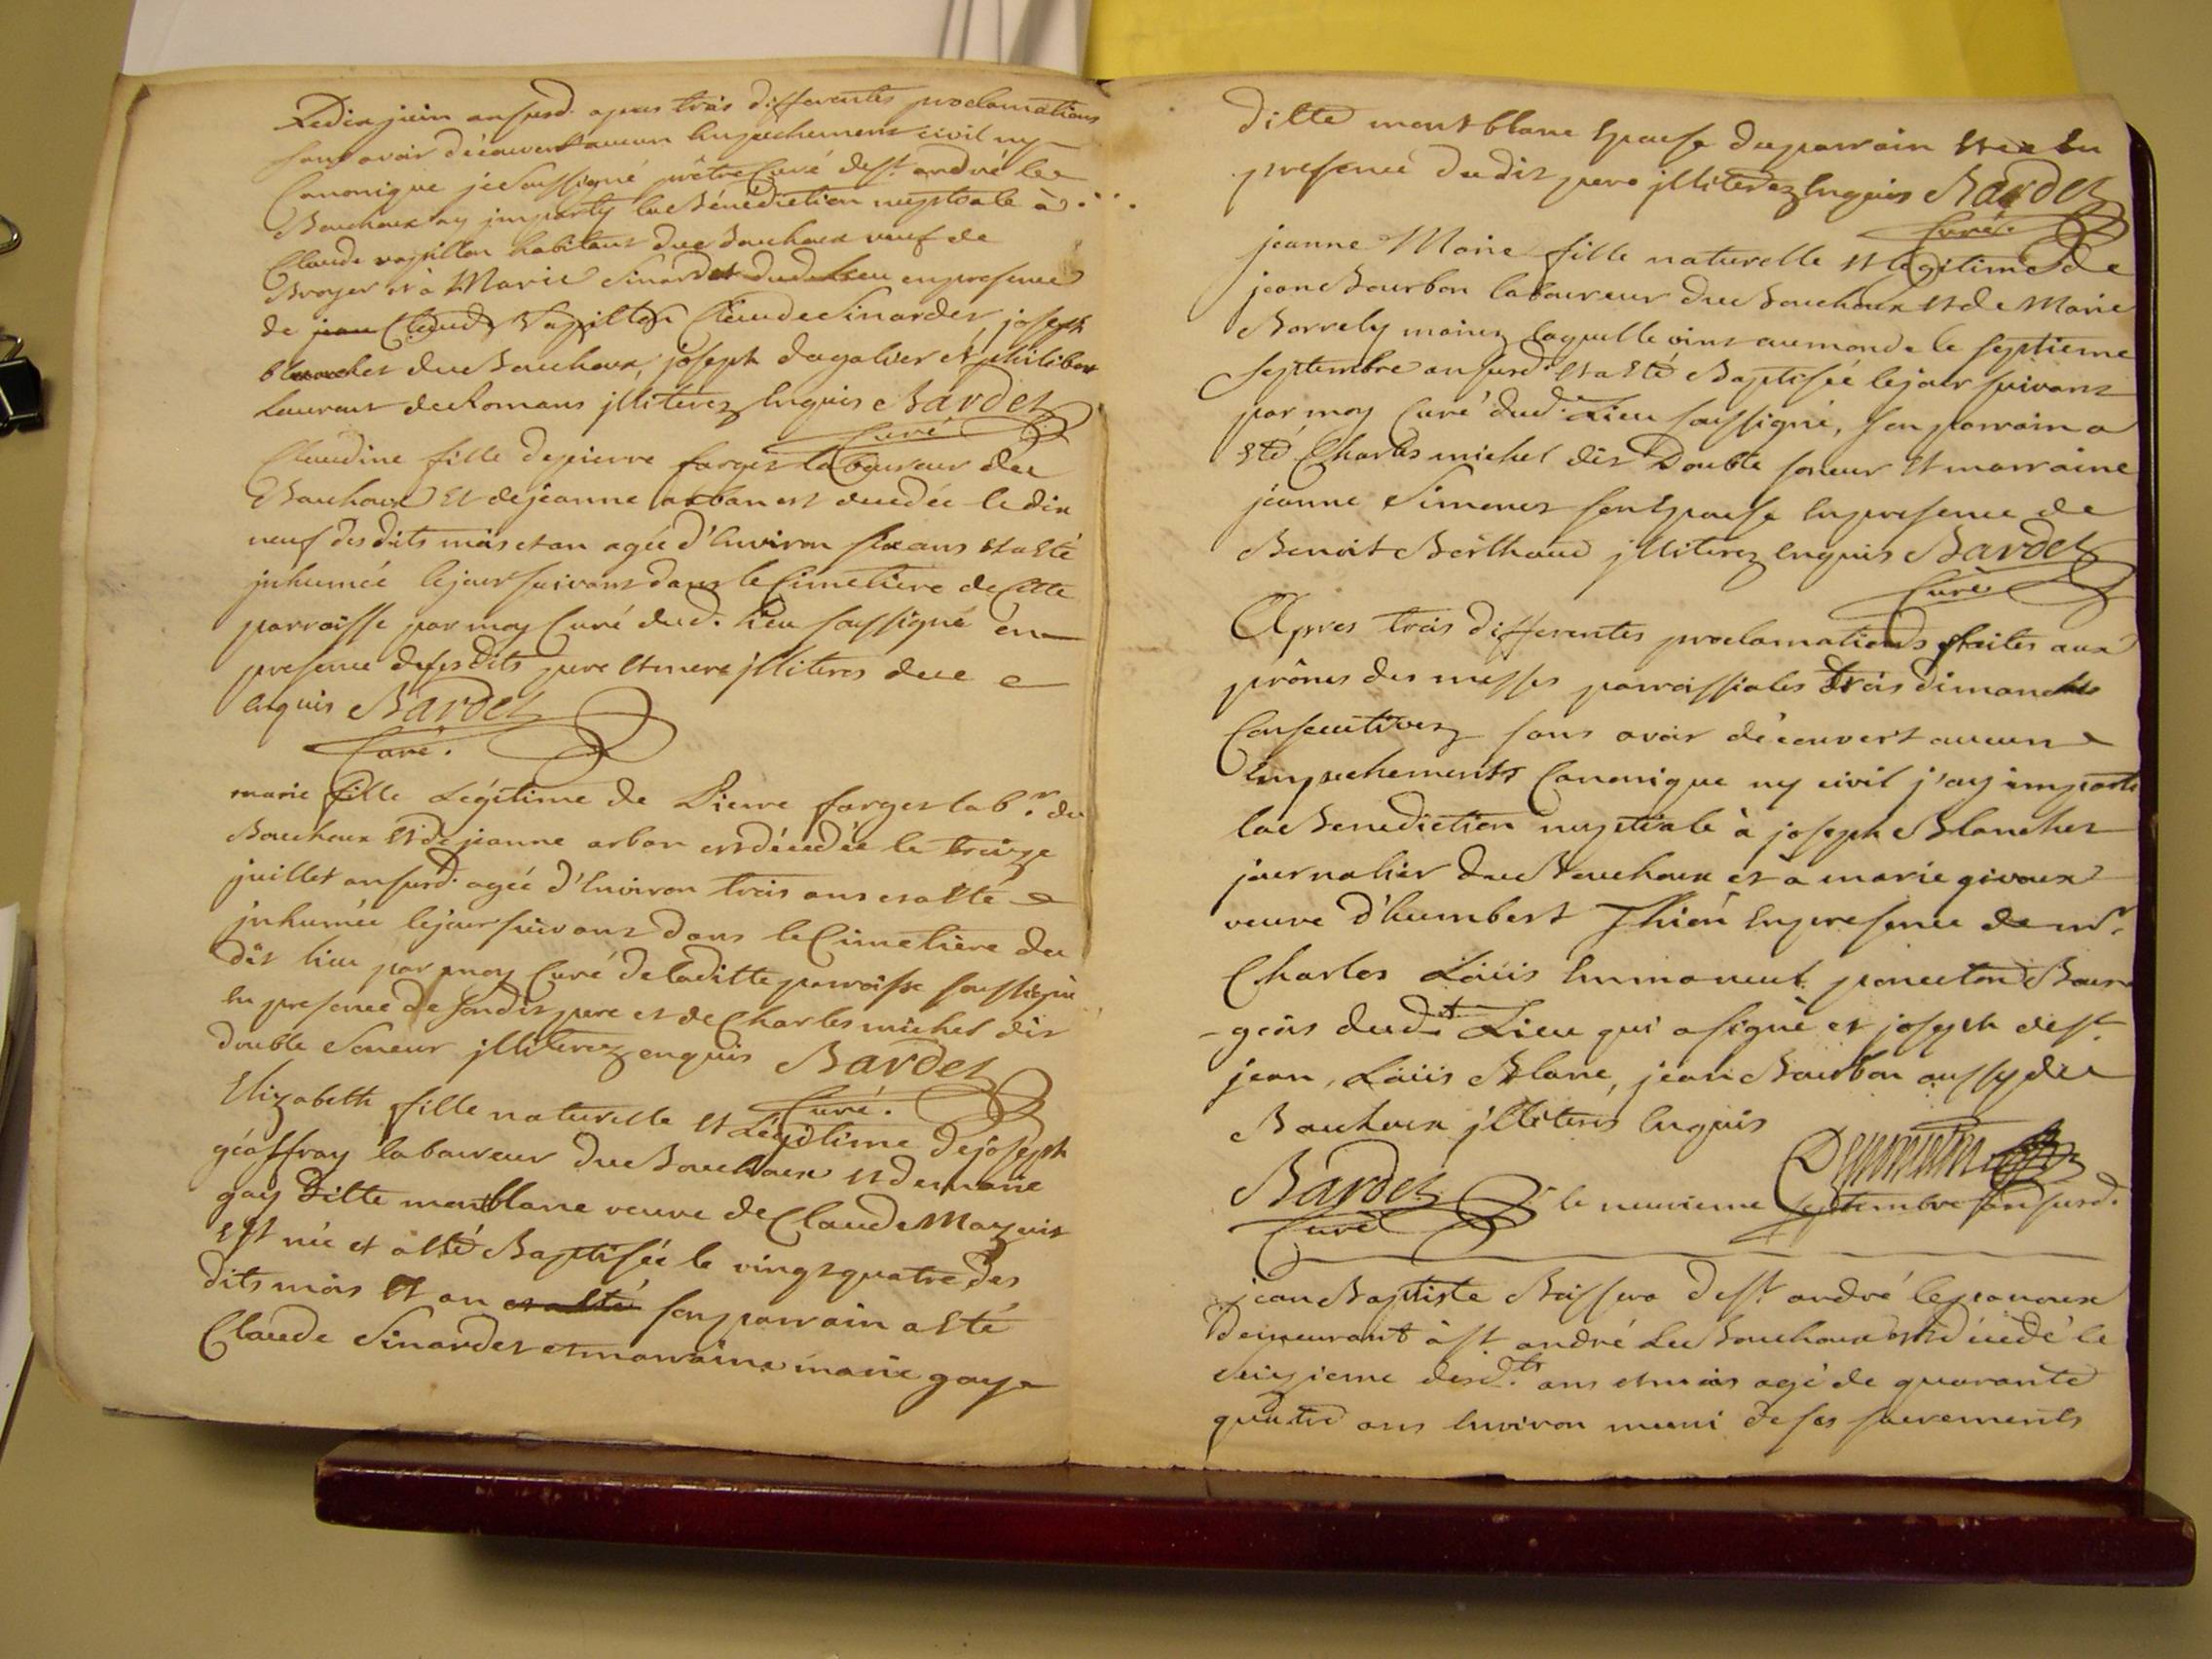 Le dix juin an susd. apres trois differentes proclamations
sans avoir découvert aucun Empechement civil ny
Canonique je soussigné prêtre Curé de st. andré le
Bouchoux ay imparty la Bénédiction nuptiale à
Claude vapillon habitant du Bouchoux veuf de
Broyer et à Marie Sinardet dud. Lieu en presence
de jean Claude Vapillon Claude Sinardet, joseph
blanchet du Bouchoux, joseph dagalier et philibert
Laurent de Romans jlliterez Enquis Bardet
Curé
Claudine fille de pierre farget laboureur du
Bouhoux Et de jeanne arban est decedée le dix
neuf desdits mois et an agée d'Environ six ans et a Eté
jnhumée le jour suivant dans le Cimetiere de Cette
parroisse par moy Curé dud. Lieu soussigné en
presence de ses dits pere et mere jlliteres de ce
enquis Bardet
Curé.
marie fille Légitime de Pierre farget lab.r du
Bouchoux Et de jeanne arban est décedée le treize
juillet an susd. agée d'Environ trois ans et a Eté
jnhumée le jour suivant dans le Cimetière du
dit lieu par moy Curé de laditte parroisse soussigné
En presence de son dit pere et de Charles michel dit
double Soneur jlliterez enquis Bardet
Curé.
Elizabeth fille naturelle et Légitime de joseph
géoffray laboureur du Bouchoux et de marie
gay ditte montblanc veuve de Claude Mazuir
Est née et a Eté Baptisée le vingt quatre des
dits mois Et an et a Eté son parrain a Eté
Claude Sinardet et marraine marie gay
ditte mont blanc Epouse du parrain et en
presence du dit pere jlliterez Enquis Bardet
Curé.
jeanne Marie fille naturelle et legitime de
jean Bourbon laboureur du Bouchoux et de Marie
Borrely mariez laquelle vint au monde le septieme
Septembre an susd. et a Eté Baptisée le jour suivant
par moy Curé dud. Lieu soussigné, son parrain a
Eté Charles michel dit Double soneur et marraine
jeanne Simonet son Epouse En presence de
Benoit Berthaud jlliterez enquis Bardet
Curé
Apres trois differentes proclamations faites aux
prônes des messes parroissiales trois dimanches
Consecutives sans avoir découvert aucun
Empechements Canonique ny civil j'ay imparti
la Benediction nuptiale à joseph Blanchet
journalier du Bouchoux et a marie givoux
veuve d'humbert Thieu En presence de mr.
Charles Loüis Emmanuel poncetton Bour
-geois dudt. Lieu qui a signé et joseph de st.
jean, Loüis Blanc, jean Bourbon aussy du
Bouchoux jlliterés Enquis
Bardet le neuvieme Septembre an susd.
Curé
jean Baptiste Buissera de st. andré le panoux
demeurant à st. andré Le Bouchoux est décedé le
seizieme desd.ts ans et mois agé de quarante
quatre ans Environ muni de ses sacrements